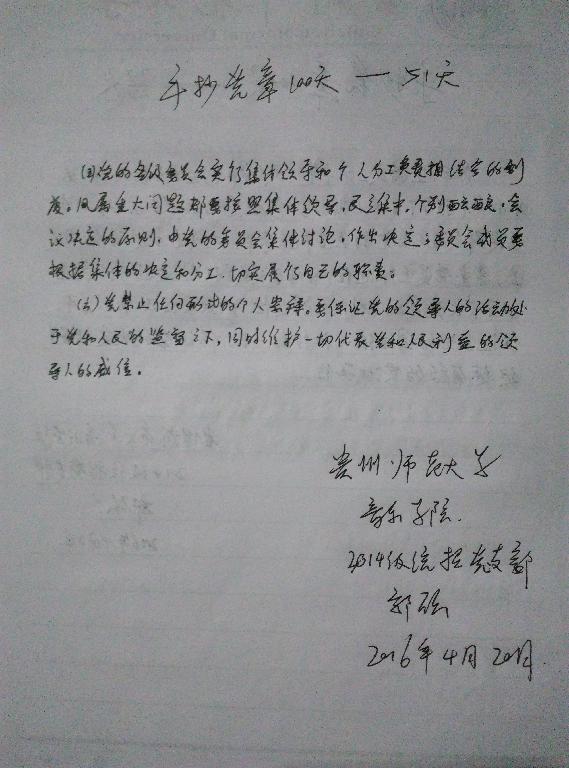 手抄党章100天 — 51天
(五)党的各级委员会实行集体领导和个人分工负责相结合的制
度。凡属重大问题都要按照集体领导,民主集中,个别酝酿,会
议决定的原则,由党的委员会集体讨论,作出决定;委员会成员要
根据集体的决定和分工,切实履行自己的职责;
(六)党禁止任何形式的个人崇拜。要保证党的领导人的活动处
于党和人民的监督之下,同时维护一切代表党和人民利益的领
导人的威信。
贵州师范大学
音乐学院.
2014级统招党支部
郭
2016年4月20日.